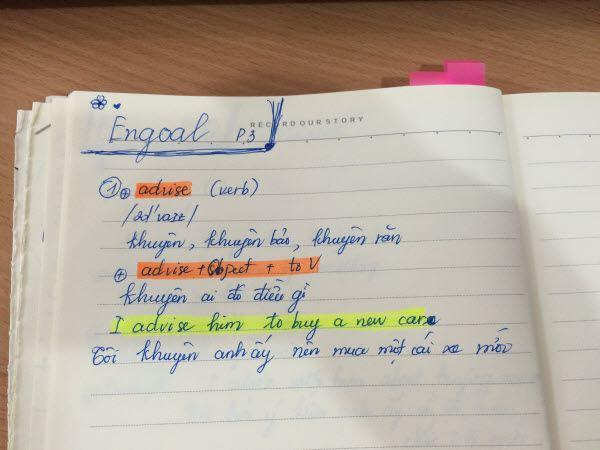 Engoal P.3
RECORD OUR STORY
① ⊕ advise (verb)
/əd'vaɪz/
khuyên, khuyên bảo, khuyên răn
⊕ advise + Object + to V
khuyên ai đó điều gì
I advise him to buy a new car.
Tôi khuyên anh ấy nên mua một cái xe mới